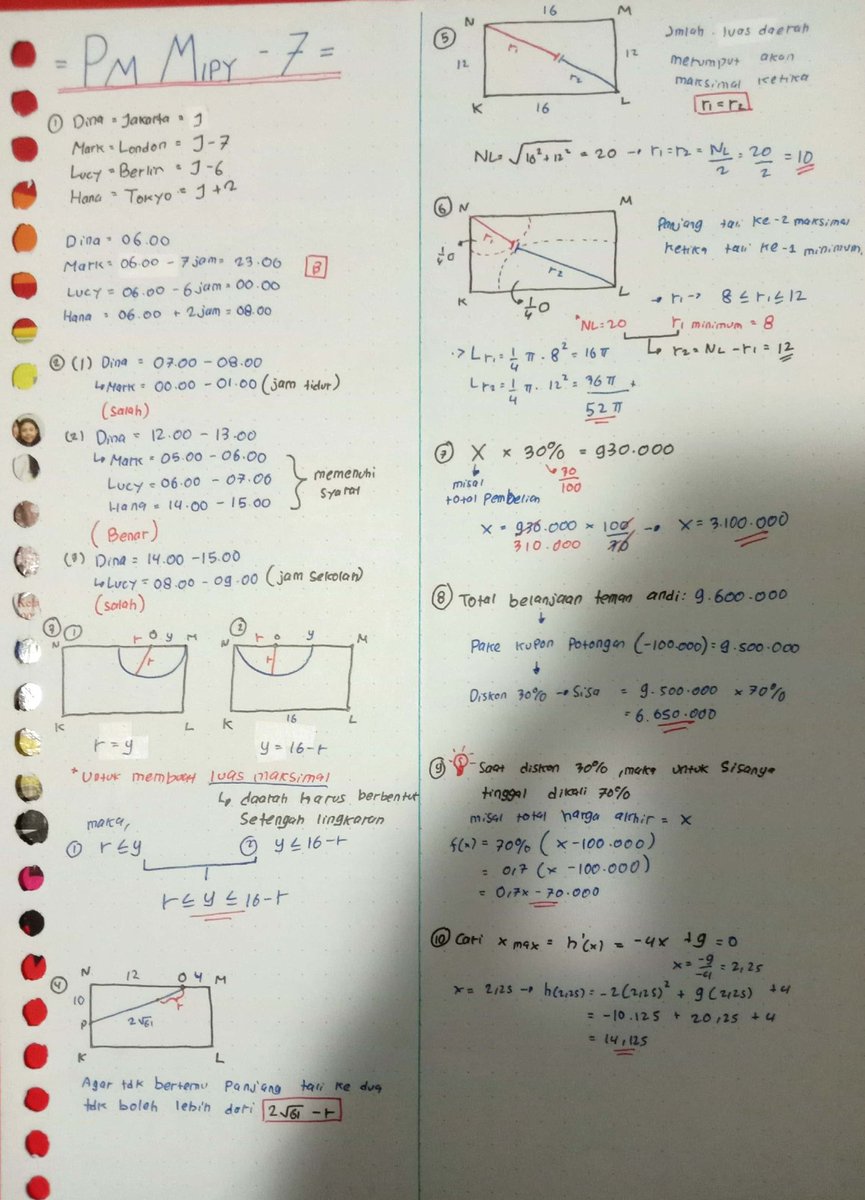 = PM MIPY - 7 =
① Dina = Jakarta = J
Mark = London = J-7
Lucy = Berlin = J-6
Hana = Tokyo = J+2
Dina = 06.00
Mark = 06.00 - 7 jam = 23.00 B
Lucy = 06.00 - 6 jam = 00.00
Hana = 06.00 + 2 jam = 08.00
② (1) Dina = 07.00 - 08.00
↳ Mark = 00.00 - 01.00 (jam tidur)
(Salah)
(2) Dina = 12.00 - 13.00
↳ Mark = 05.00 - 06.00
Lucy = 06.00 - 07.00
Hana = 14.00 - 15.00
memenuhi
syarat
(Benar)
(3) Dina = 14.00 - 15.00
↳ Lucy = 08.00 - 09.00 (jam sekolah)
(salah)
③ ① N r O y M
r
K L
r = y
② N r o y M
r
K 16 L
y = 16-r
* Untuk membuat luas maksimal
↳ daerah harus berbentuk
Setengah lingkaran
maka,
① r ≤ y ② y ≤ 16-r
r ≤ y ≤ 16-r
④ N 12 O 4 M
10 r
P 2√61
K L
Agar tdk bertemu panjang tali ke dua
tdk boleh lebih dari 2√61 - r
⑤ N 16 M
12 r₁ r₂ 12
K 16 L
Jmlah luas daerah
merumput akan
maksimal ketika
r₁ = r₂
NL = √16² + 12² = 20 → r₁ = r₂ = NL/2 = 20/2 = 10
⑥ N M
r₁ r₂
¼O
K L
¼O
Panjang tali ke-2 maksimal
ketika tali ke-1 minimum,
→ r₁ → 8 ≤ r₁ ≤ 12
*NL = 20 r₁ minimum = 8
↳ r₂ = NL - r₁ = 12
·> L r₁ = ¼ π · 8² = 16 π
L r₂ = ¼ π · 12² = 36 π +
52 π
⑦ X × 30% = 930.000
misal
total pembelian
↳ 30/100
X = 930.000 × 100/30 → X = 3.100.000
310.000
⑧ Total belanjaan teman andi: 9.600.000
Pake kupon potongan (-100.000) = 9.500.000
Diskon 30% → Sisa = 9.500.000 × 70%
= 6.650.000
⑨ Saat diskon 30%, maka untuk sisanya
tinggal dikali 70%
misal total harga akhir = x
f(x) = 70% (x - 100.000)
= 0,7 (x - 100.000)
= 0,7x - 70.000
⑩ Cari x max = h'(x) = -4x + 9 = 0
x = -9/-4 = 2,25
x = 2,25 → h(2,25) = -2(2,25)² + 9(2,25) + 4
= -10.125 + 20,25 + 4
= 14,125